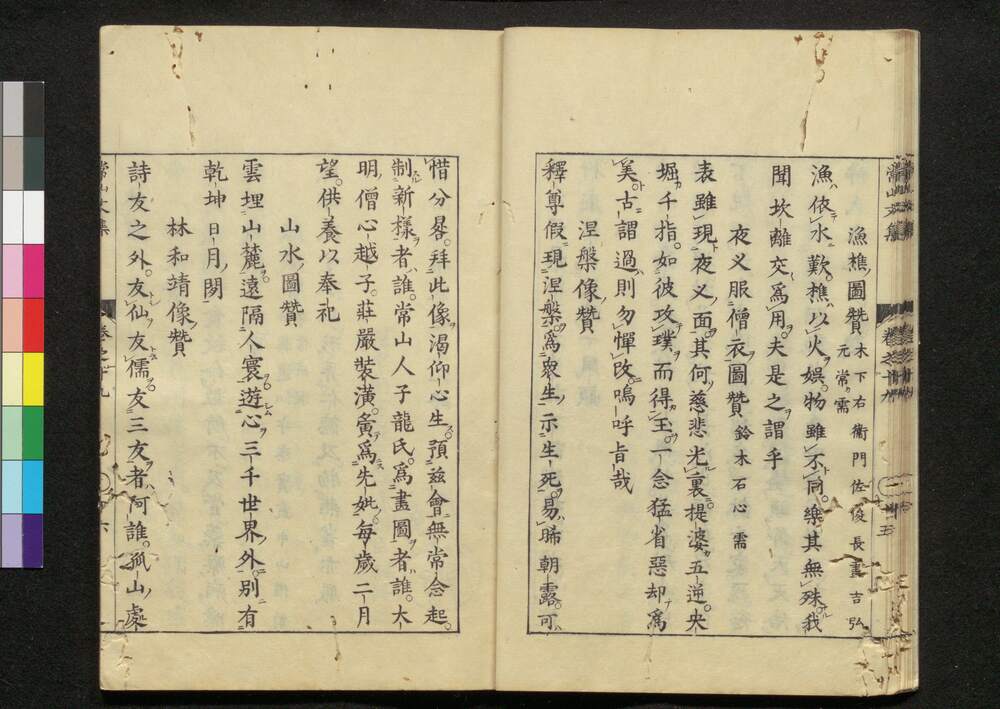 漁樵圖贊 木下右衞門佐俊長畫吉弘
元常需
漁依水歎樵以火娯物雖不同樂其無殊我
聞坎離交爲用夫是之謂乎
夜叉服僧衣圖贊 鈴木石心需
表雖現夜叉面其何慈悲光裏提婆五逆央
堀千指如彼攻璞而得玉一念猛省惡却爲
美古謂過則勿憚改嗚呼旨哉
涅槃像贊
釋尊假現涅槃爲衆生示生死易晞朝露可
惜分晷拜此像渴仰心生預玆會無常念起
制新樣者誰常山人子龍氏爲畫圖者誰大
明僧心越子莊嚴裝潢寅爲先妣每歲二月
望供養以奉祀
山水圖贊
雲埋山麓遠隔人寰遊心三千世界外別有
乾坤日月閑
林和靖像贊
詩友之外友仙友儒友三友者阿誰孤山處
常山文集
卷之十九